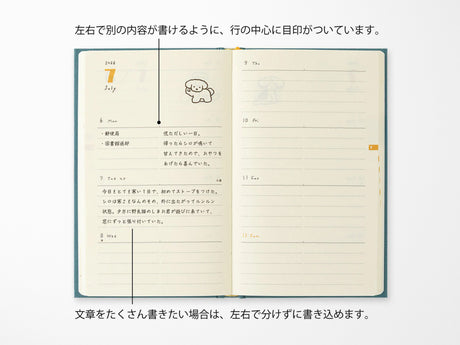 左右で別の内容が書けるように、行の中心に目印がついています。
7
July
6 Mon
・郵便局
・図書館返却
慌ただしい一日。
帰ったらシロが鳴いて
甘えてきたので、おやつを
あげたら喜んでいた。
7 Tue
今日もとても寒い1日で、初めてストーブをつけた。
シロは寒さもなんのその、外に出たがってルンルン
状態。夕方に野良猫のしまお君が遊びに来ていて、
窓にずっと張り付いていた。
8 Wed
9 Thu
10 Fri
11 Sat
12 Sun
文章をたくさん書きたい場合は、左右で分けずに書き込めます。